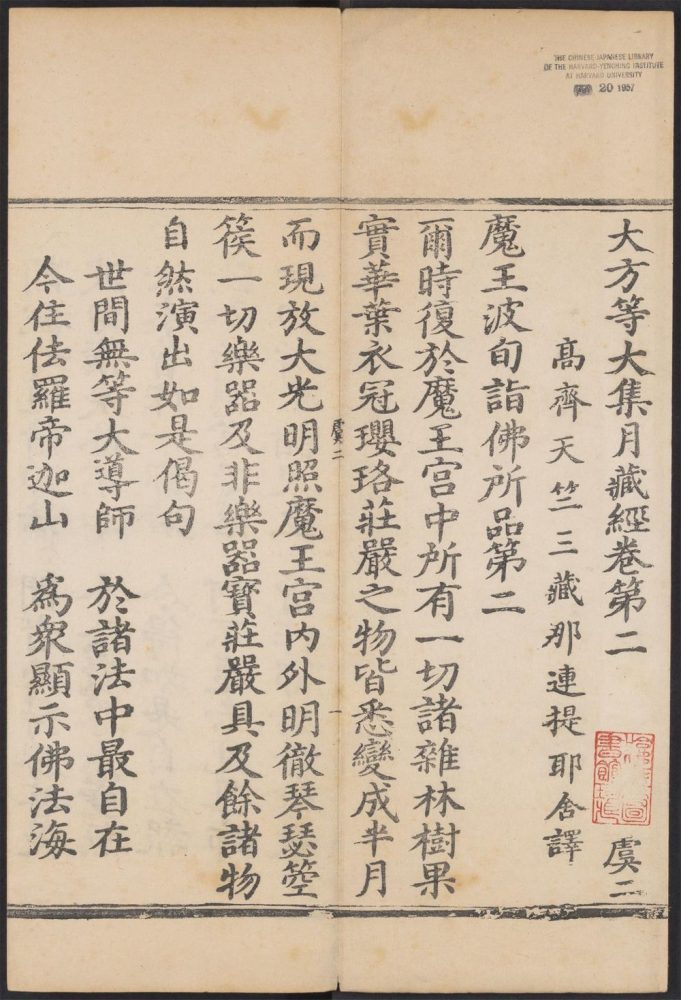 THE CHINESE-JAPANESE LIBRARY
OF THE HARVARD-YENCHING INSTITUTE
AT HARVARD UNIVERSITY
20 1957
大方等大集月藏經卷第二 虞二
高齊天竺三藏那連提耶舍譯
魔王波旬詣佛所品第二
爾時復於魔王宮中所有一切諸雜林樹果
實華葉衣冠瓔珞莊嚴之物皆悉變成半月
虞二 一
而現放大光明照魔王宮內外明徹琴瑟箜
篌一切樂器及非樂器寶莊嚴具及餘諸物
自然演出如是偈句
世間無等大導師 於諸法中最自在
今住佉羅帝迦山 為衆顯示佛法海